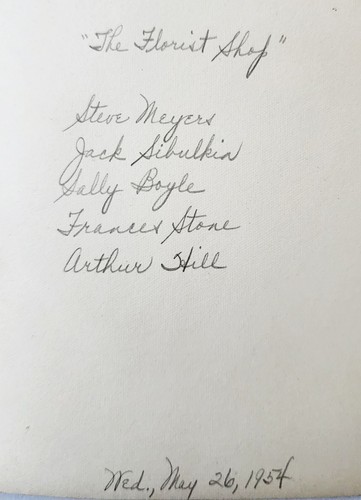 "The Florist Shop"
Steve Meyers
Jack Sibulkin
Sally Boyle
Frances Stone
Arthur Hill
Wed., May 26, 1954